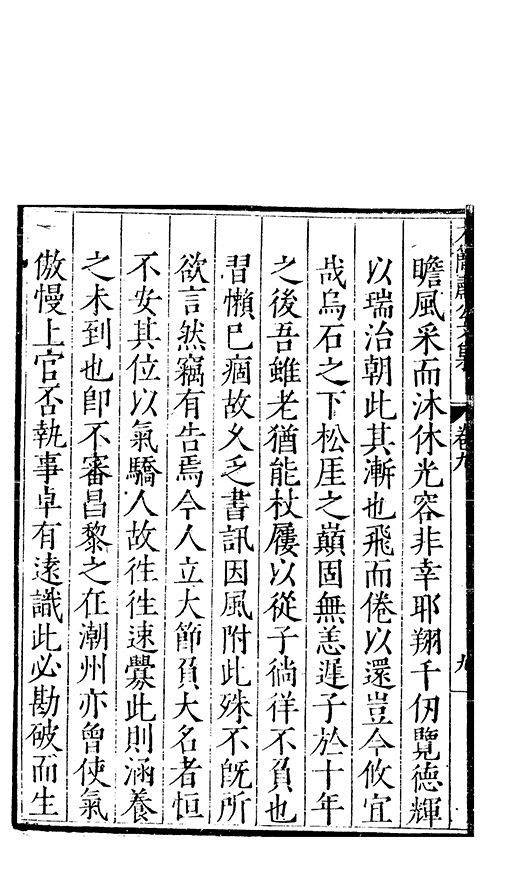 卷九
九
瞻風采而沐休光容非幸耶翔千仞覽德輝
以瑞治朝此其漸也飛而倦以還豈今攸宜
哉烏石之下松厓之巔固無恙遲子於十年
之後吾雖老猶能杖屨以從子徜徉不負也
習懶已痼故久乏書訊因風附此殊不旣所
欲言然竊有告焉今人立大節負大名者恒
不安其位以氣驕人故徃徃速釁此則涵養
之未到也卽不審昌黎之在潮州亦曾使氣
傲慢上官否執事卓有遠識此必勘破而生